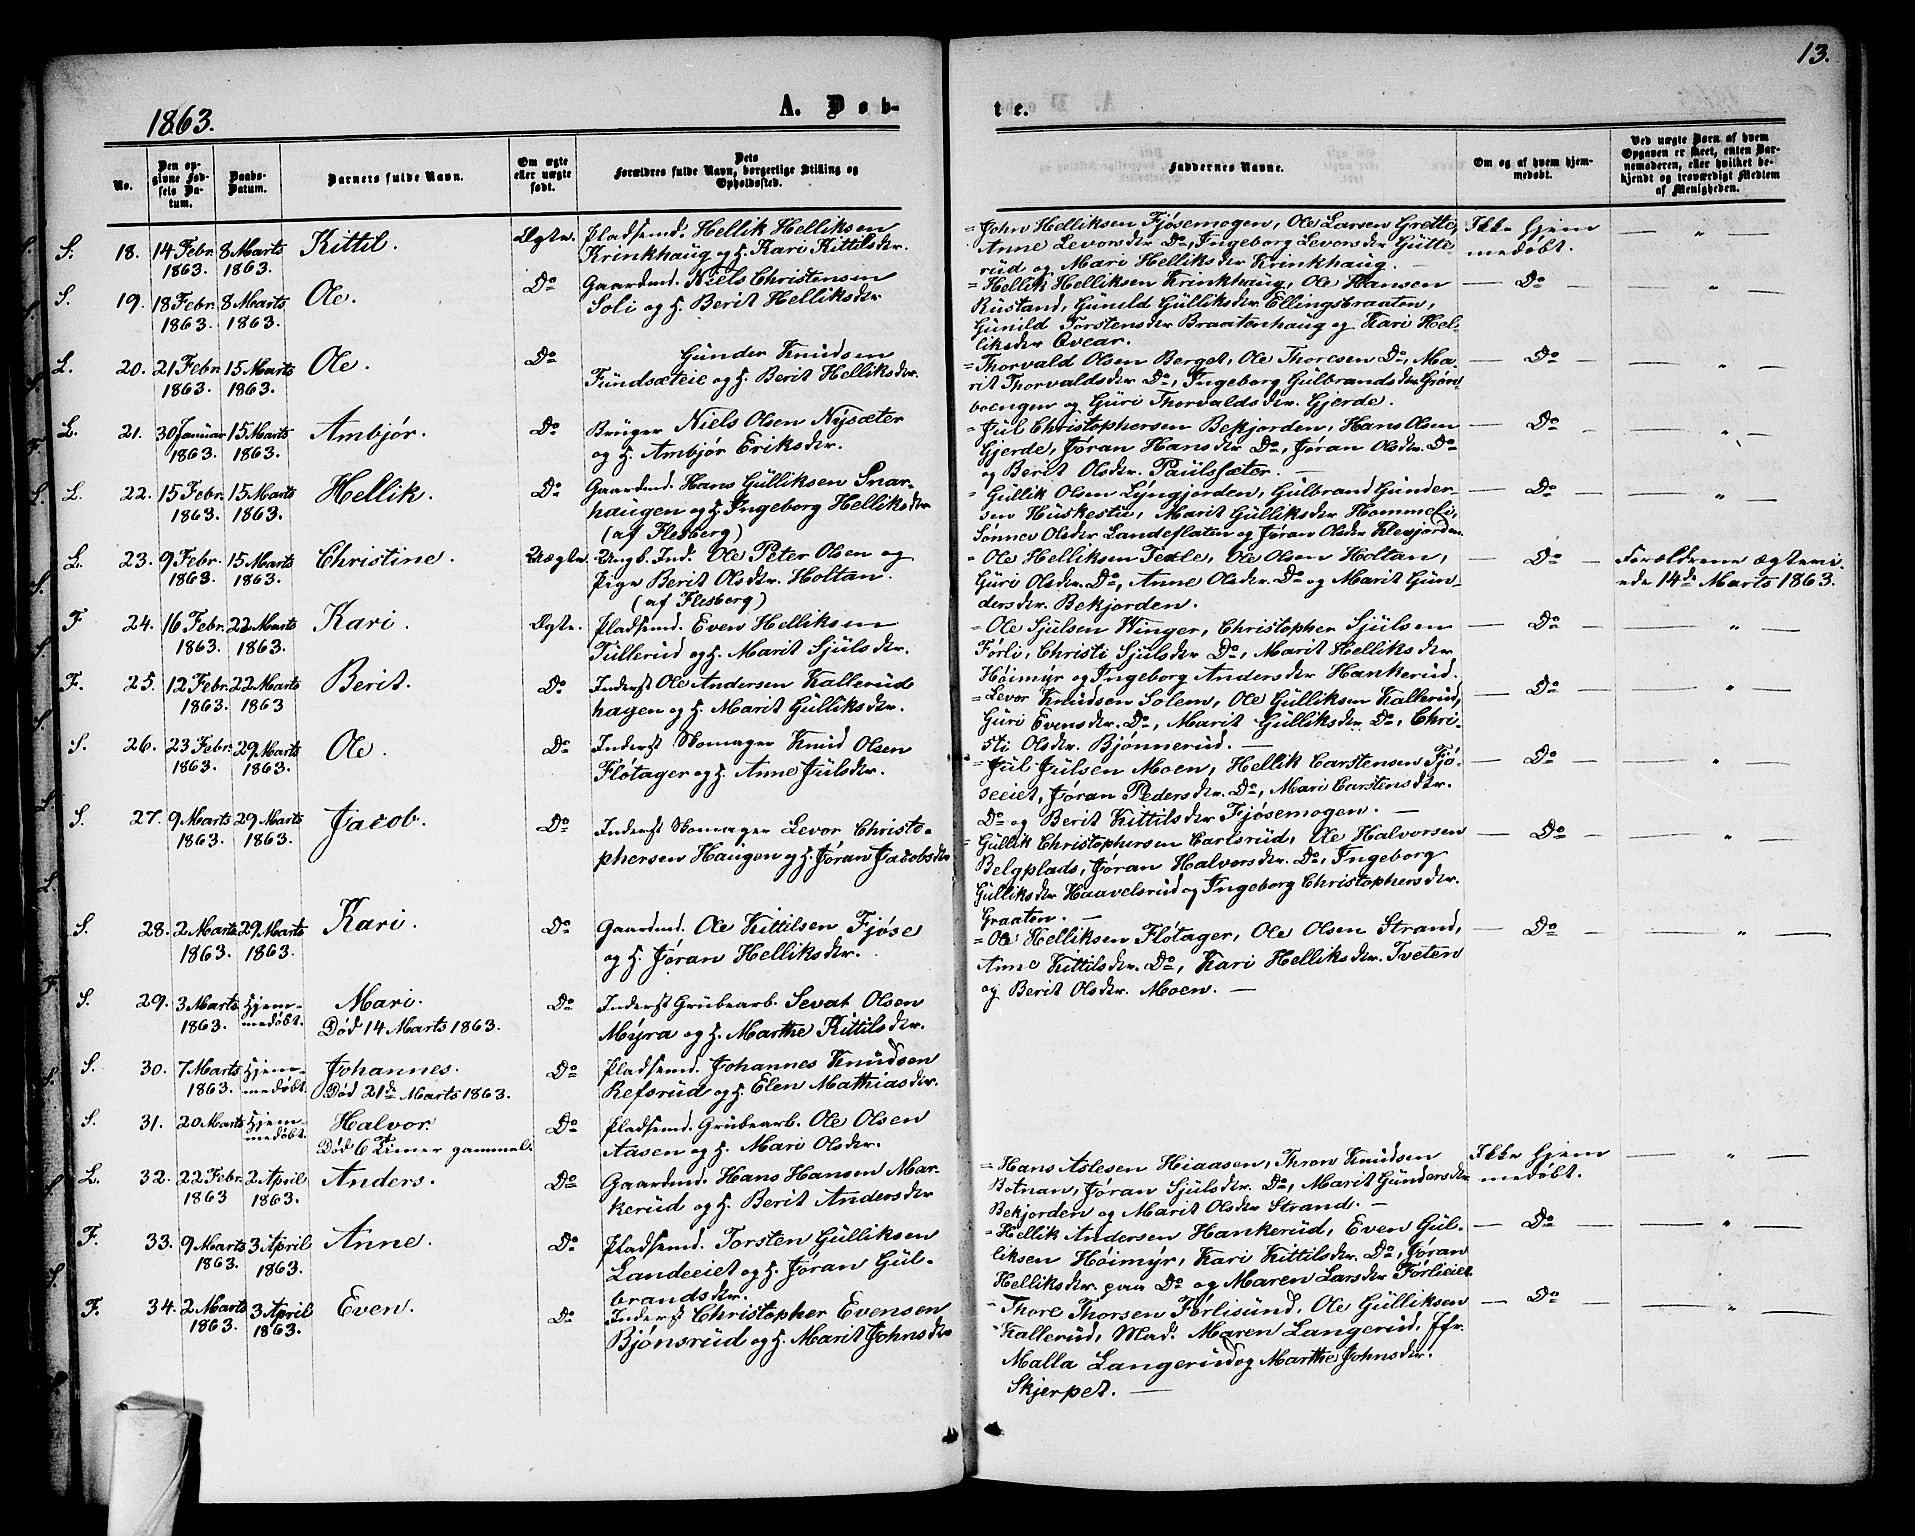 13.
1863.
A. Døb-
te.
No.
Den opgivne Fødsels Datum.
Daabs-Datum.
Barnets fulde Navn.
Om ægte eller uægte født.
Dets Forældres fulde Navn, borgerlige Stilling og Opholdssted.
Faddernes Navne.
Om og af hvem hjemmedøbt.
Ved uægte Børn af hvem Opgaven er skeet, enten Barnemoderen, eller hvilket bekjendt og troværdigt Medlem af Menigheden.
S. 18. 14 Febr. 1863. 8 Marts 1863. Kittil. Ægte. Pladsemd. Hellik Helliksen
Krinkhaug og H. Kari Kittilsdtr.
= John Helliksen Fjøsemogen, Ole Larsen Grette,
Anne Levorsdtr Do, Ingeborg Levorsdtr Gütte
rüd og Mari Helliksdtr Krinkhaug. —
Ikke hjem
medøbt.
— „ —
S. 19. 18 Febr. 1863. 8 Marts 1863. Ole. Do Gaardmd. Niels Christensen
Soli og H. Berit Helliksdtr
= Hellik Helliksen Krinkhaug, Ole Hansen
Rüstand, Günild Gülliksdtr Ellingsbraaten,
Günild Torstensdtr Braatenhaug og Kari Hel-
liksdtr Qvear.
— Do — — „ —
L. 20. 21 Febr. 1863. 15 Marts 1863. Ole. Do Günder Knüdsen
Fündsæteie og H. Berit Helliksdtr.
= Thorvald Olsen Berget, Ole Thoresen Do, Ma-
rit Thorvaldsdtr. Do, Ingeborg Gülbrandsdtr Grøn
boengen og Güri Thorvaldsdtr. Gjerde.
— Do — — „ —
L. 21. 30 Januar 1863. 15 Marts 1863. Ambjør. Do Brüger Niels Olsen Nysæter
og H. Ambjør Eriksdtr.
= Jül Christophersen Bekjorden, Hans Olsen
Gjerde, Jøran Hansdtr Do, Jøran Olsdtr. Do
og Berit Olsdtr. Paülsæter. —
— Do — — „ —
L. 22. 15 Febr. 1863. 15 Marts 1863. Hellik. Do Gaardmd. Hans Gülliksen Snar-
haugen og H. Ingeborg Helliksdtr
(af Flesberg)
= Güllik Olsen Lyngjorden, Gülbrand Günder-
sen Hüskestü, Marit Gülliksdtr Hommeli,
Sønnev Olsdtr Landeflaten og Jøran Olsdtr Klevjorden.
— Do — — „ —
L. 23. 9 Febr. 1863. 15 Marts 1863. Christine. Uægte. Ungk. Ind. Ole Peter Olsen og
Pige Berit Olsdtr. Holtan.
(af Flesberg)
= Ole Helliksen Texle, Ole Olsen Holtan,
Güri Olsdtr. Do, Anne Olsdtr. Do og Marit Gün-
dersdtr. Bekjorden.
— Do — Forældrene ægtevi-
ede 14de Marts 1863.
F 24. 16 Febr. 1863. 22 Marts 1863. Kari. Ægte. Pladsemd. Even Helliksen
Tüllerüd og H. Marit Sjülsdtr.
= Ole Sjülsen Winger, Christopher Sjülsen
Førli, Christi Sjülsdtr Do, Marit Helliksdtr
Høimyr og Ingeborg Andersdtr Hankerüd.
— Do — — „ —
F. 25. 12 Febr. 1863. 22 Marts 1863 Berit. Do Inderst Ole Andersen Kallerüd
hagen og H. Marit Gülliksdtr.
= Levor Knüdsen Solem, Ole Gülliksen Kallerüd,
Güri Evensdtr. Do, Marit Gülliksdtr Do, Chri-
sti Olsdtr. Bjønnerüd. —
— Do — — „ —
S. 26. 23 Febr. 1863. 29 Marts 1863. Ole. Do Inderst Skomager Knüd Olsen
Fløtager og H. Anne Jülsdtr.
= Jül Jülsen Moen, Hellik Carstensen Fjø-
seeiet, Jøran Pedersdtr. Do, Mari Carstensdtr.
Do og Berit Kittilsdtr Fjøsemogen. —
— Do — — „ —
S. 27. 9 Marts 1863. 29 Marts 1863. Jacob. Do Inderst Skomager Levor Christo-
phersen Haugen og H. Jøran Jacobsdtr
= Güllik Christophersen Carlsrüd, Ole Halvorsen
Belgplads, Jøran Halvorsdtr. Do, Ingeborg
Gülliksdtr Haavelsrüd og Ingeborg Christophersdtr.
Graaten. —
— Do — — „ —
S. 28. 2 Marts 1863. 29 Marts 1863. Kari. Do Gaardmd. Ole Kittilsen Fjøse
og H. Jøran Helliksdtr.
= Ole Helliksen Fløtager, Ole Olsen Strand,
Anne Kittilsdtr. Do, Kari Helliksdtr. Tveten
og Berit Olsdtr. Moen. —
— Do — — „ —
S. 29. 3 Marts 1863. Hjem-medøbt. Mari.
Død 14 Marts 1863.
Do Inderst Grübearb. Sevat Olsen
Myra og H. Marthe Kittilsdtr.
S. 30. 7 Marts 1863. Hjem-medøbt. Johannes.
Død 21de Marts 1863.
Do Pladsemd. Johannes Knüdsen
Refsrüd og H. Elen Mathiasdtr.
S. 31. 20 Marts Hjem-medøbt. Halvor.
Død 6 Timer gammel.
Do Pladsemd. Grübearb. Ole Olsen
Aasen og H. Mari Olsdtr.
L. 32. 22 Febr. 1863 2 April 1863. Anders. Do Gaardmd. Hans Hansen Mar-
kerüd og H. Berit Andersdtr
= Hans Aslesen Hiaasen, Thron Knüdsen
Botnan, Jøran Sjülsdtr. Do, Marit Gündersdtr
Bekjorden og Marit Olsdtr Strand. —
Ikke hjem
medøbt.
— „ —
F. 33. 9 Marts 1863. 3 April 1863. Anne. Do Pladsemd. Torsten Gülliksen
Landeeiet og H. Jøran Gül-
brandsdtr.
= Hellik Andersen Hankerüd, Even Gül-
liksen Høimyr, Kari Kittilsdtr. Do, Jøran
Helliksdtr. paa Do og Maren Larsdtr Førlieiet
— Do — — „ —
F. 34. 2 Marts 1863. 3 April 1863. Even. Do Inderst Christopher Evensen
Bjønsrüd og H. Marit Johnsdtr
= Thore Thorsen Førlisünd, Ole Gülliksen
Kallerüd, Mad. Maren Langerüd, Jfr.
Malla Langerüd og Marthe Johnsdtr.
Skjerpet. —
— Do — — „ —